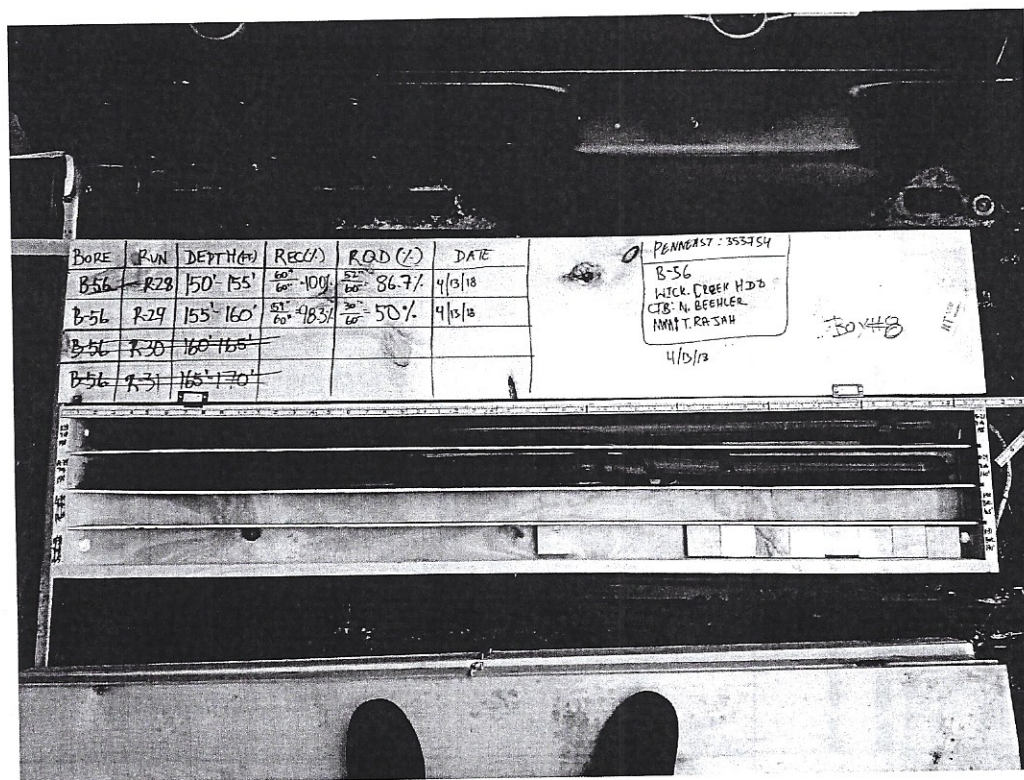 BORE RUN DEPTH(ft) REC(%) RQD (%) DATE
B-56 R-28 150'-155' 60"/60" -100% 52"/60" 86.7% 4/13/18
B-56 R-29 155'-160' 59"/60" -98.3% 30"/60" -50% 4/13/18
B-56 R-30 160'-165'
B-56 R-31 165'-170'
PENNEAST: 353754
B-56
WICK. CREEK HDD
CTB: N. BEEHLER
T. RAJAH
4/13/18
Box#8